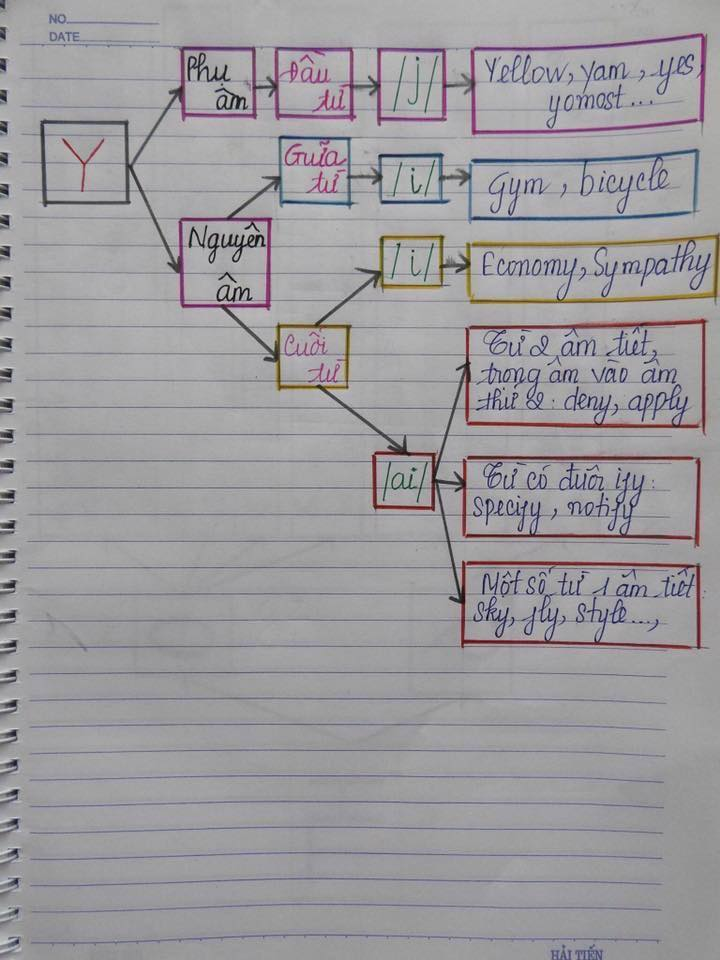 NO.
DATE
Y
Phụ
âm
Đầu
từ
/j/
Yellow, yam, yes,
yomost...
Nguyên
âm
Giữa
từ
/i/
Gym, bicycle
Cuối
từ
/i/
Economy, Sympathy
/ai/
Từ 2 âm tiết,
trọng âm vào âm
thứ 2: deny, apply
Từ có đuôi ify:
specify, notify
Một số từ 1 âm tiết:
sky, fly, style...,
HẢI TIẾN